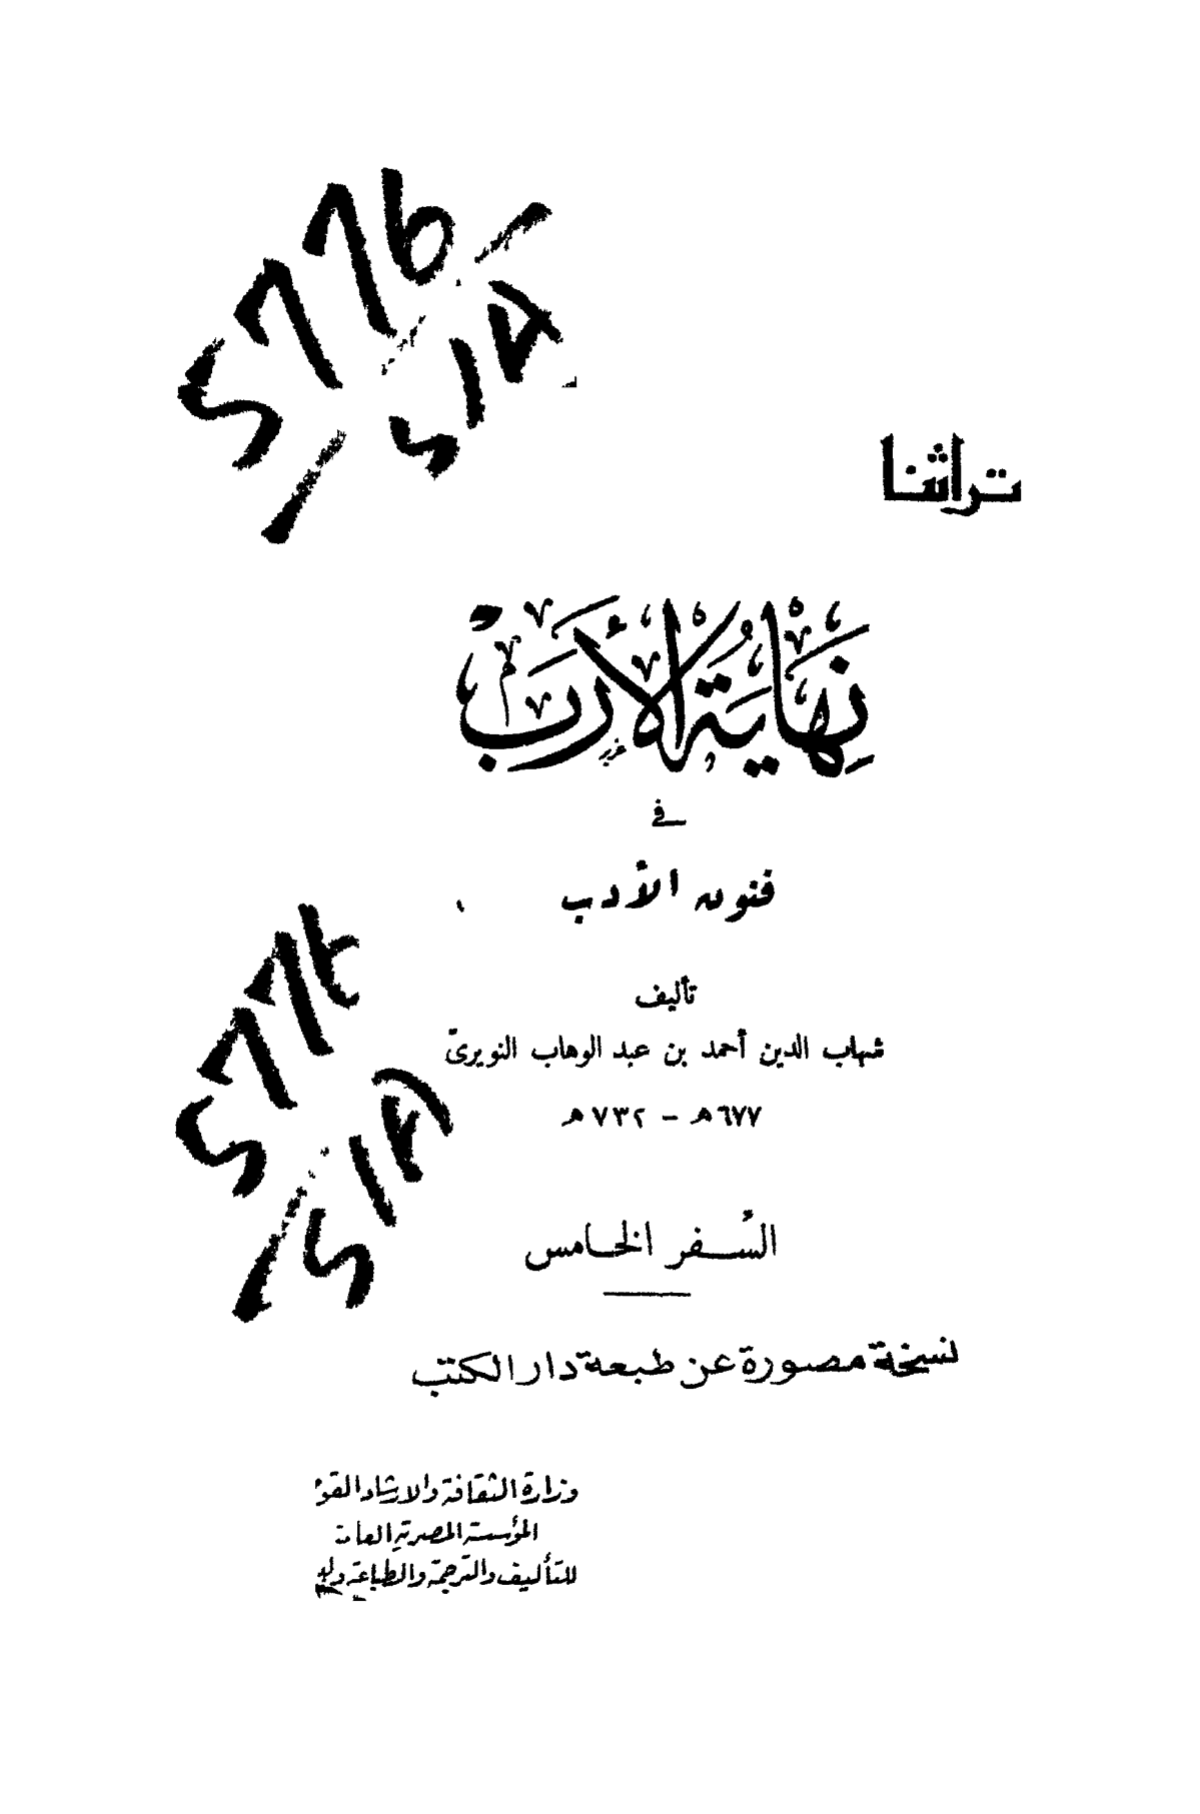 تراثنا
نِهَايَةُ الأَرَبْ
في
فنون الأدب
تأليف
شهاب الدين أحمد بن عبد الوهاب النويرىّ
٦٧٧هـ – ٧٣٢هـ
السّفر الخامس
نسخة مصورة عن طبعة دار الكتب
وزارة الثقافة والارشاد
المؤسسة المصرية العامة
للتأليف والترجمة والطباعة